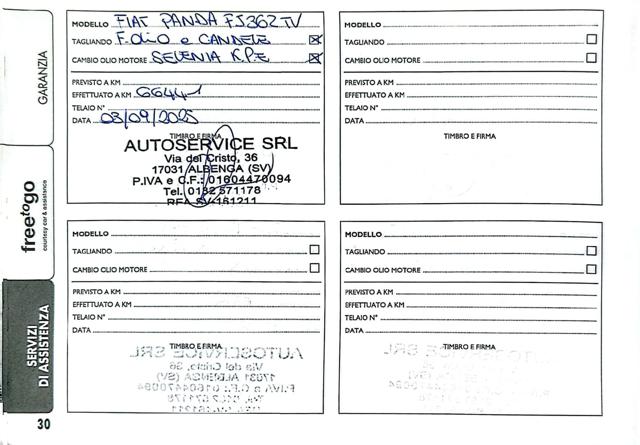 GARANZIA
freetogo
courtesy car & assistance
SERVIZI
DI ASSISTENZA
30
MODELLO FIAT PANDA FJ362TV
TAGLIANDO F.OLIO e CANDELE
CAMBIO OLIO MOTORE SELENIA K.P.E
PREVISTO A KM
EFFETTUATO A KM 66441
TELAIO N°
DATA 03/09/2025
TIMBRO E FIRMA
AUTOSERVICE SRL
Via del Cristo, 36
17031 ALBENGA (SV)
P.IVA e C.F.: 01604470094
Tel. 0182 571178
REA SV-161211
MODELLO
TAGLIANDO
CAMBIO OLIO MOTORE
PREVISTO A KM
EFFETTUATO A KM
TELAIO N°
DATA
TIMBRO E FIRMA
MODELLO
TAGLIANDO
CAMBIO OLIO MOTORE
PREVISTO A KM
EFFETTUATO A KM
TELAIO N°
DATA
TIMBRO E FIRMA
MODELLO
TAGLIANDO
CAMBIO OLIO MOTORE
PREVISTO A KM
EFFETTUATO A KM
TELAIO N°
DATA
TIMBRO E FIRMA